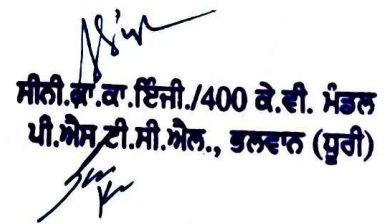 ਸੀਨੀ.ਕਾ.ਕਾ.ਇੰਜੀ./400 ਕੇ.ਵੀ. ਮੰਡਲ
ਪੀ.ਐਸ.ਟੀ.ਸੀ.ਐਲ., ਭਲਵਾਨ (ਧੂਰੀ)